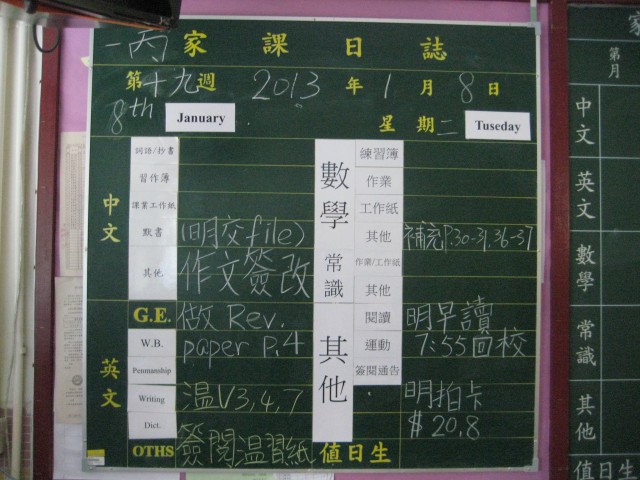 一丙 家課日誌
第十九週 2013年1月8日
8th January 星期二 Tuseday
中文
詞語/抄書
習作簿
課業工作紙
默書 (明交file)
其他 作文簽改
英文
G.E. 做 Rev.
W.B. paper P.4
Penmanship
Writing 温V3,4,7
Dict.
OTHS 簽閱温習紙
數學
練習簿
作業
工作紙
其他 補充P.30-31,36-37
常識
作業/工作紙
其他
其他
閱讀 明早讀
運動 7:55回校
簽閱通告
明拍卡
$20.8
值日生
家
第
月
中文
英文
數學
常識
其他
值日生